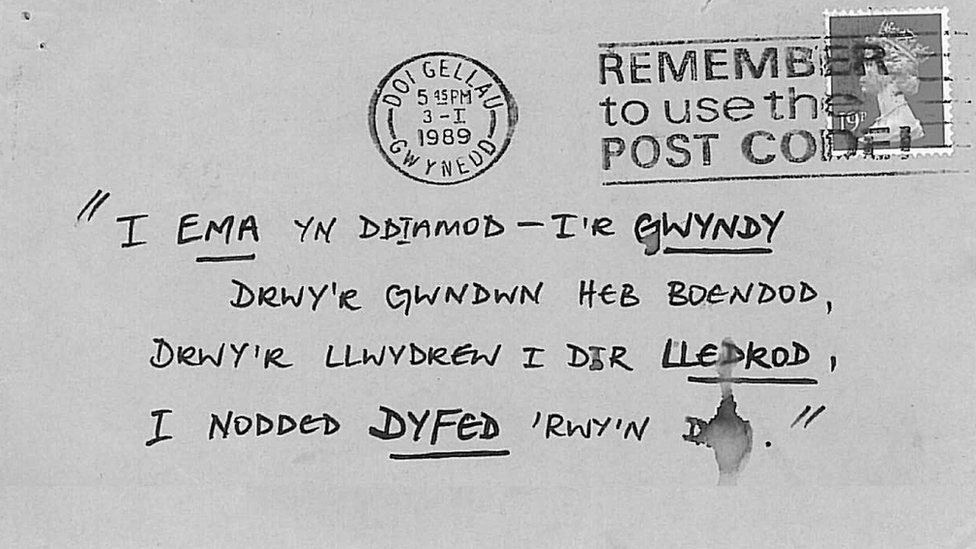 DOLGELLAU
5 45PM
3-I
1989
GWYNEDD
REMEMBER
to use the
POST CODE!
19P
"I EMA YN DDIAMOD – I'R GWYNDY
DRWY'R GWNDWN HEB BOENDOD,
DRWY'R LLWYDREW I DIR LLEDROD,
I NODDED DYFED 'RWY'N ."